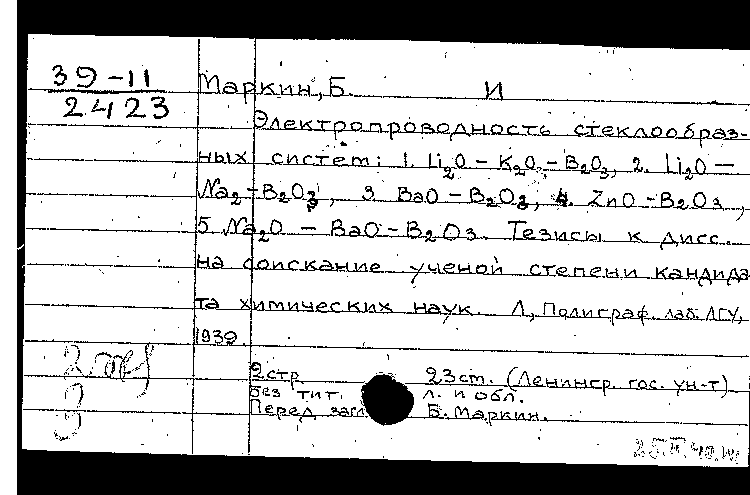 39-11
2423
Маркин, Б. И
Электропроводность стеклообраз-
ных систем: 1. Li2O – K2O – B2O3, 2. Li2O –
Na2 – B2O3, 3. BaO – B2O3, 4. ZnO – B2O3,
5. Na2O – BaO – B2O3. Тезисы к дисс.
на соискание ученой степени кандида
та химических наук. Л., Полиграф. лаб. ЛГУ,
1939.
2 стр. 23 см. (Ленингр. гос. ун-т)
Без тит. л. и обл.
Перед загл. Б. Маркин.